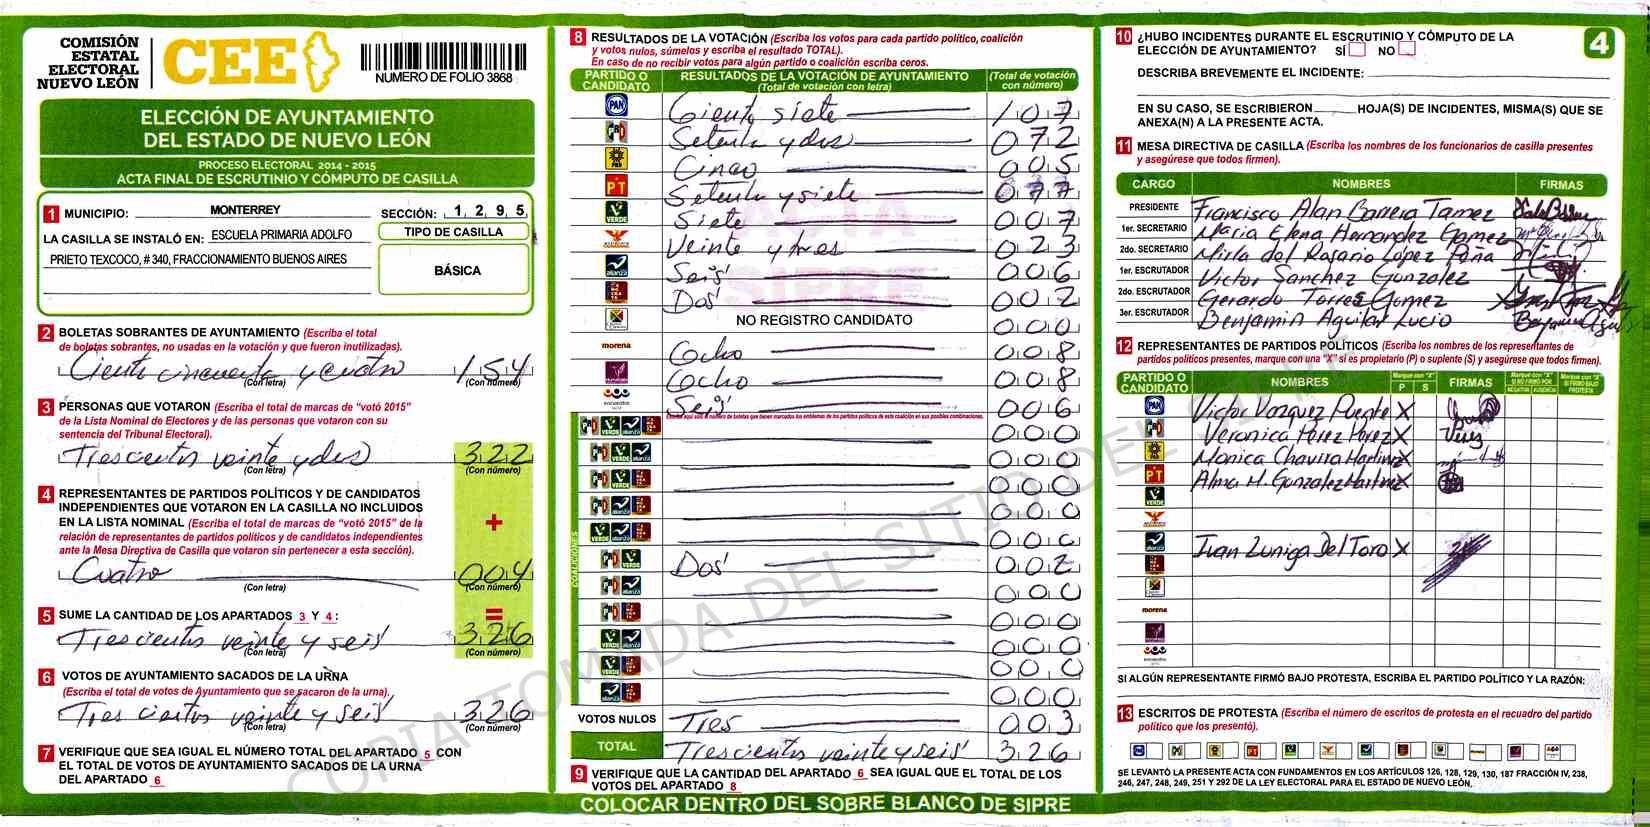 COMISIÓN
ESTATAL
ELECTORAL
NUEVO LEÓN
CEE
NUMERO DE FOLIO 3868
ELECCIÓN DE AYUNTAMIENTO
DEL ESTADO DE NUEVO LEÓN
PROCESO ELECTORAL 2014 - 2015
ACTA FINAL DE ESCRUTINIO Y CÓMPUTO DE CASILLA
1 MUNICIPIO: MONTERREY SECCIÓN: 1 2 9 5
LA CASILLA SE INSTALÓ EN: ESCUELA PRIMARIA ADOLFO
PRIETO TEXCOCO, # 340, FRACCIONAMIENTO BUENOS AIRES
TIPO DE CASILLA
BÁSICA
2 BOLETAS SOBRANTES DE AYUNTAMIENTO (Escriba el total
de boletas sobrantes, no usadas en la votación y que fueron inutilizadas).
Ciento cincuenta y cuatro 154
(Con letra) (Con número)
3 PERSONAS QUE VOTARON (Escriba el total de marcas de “votó 2015”
de la Lista Nominal de Electores y de las personas que votaron con su
sentencia del Tribunal Electoral).
Trescientos veinte y dos 322
(Con letra) (Con número)
4 REPRESENTANTES DE PARTIDOS POLÍTICOS Y DE CANDIDATOS
INDEPENDIENTES QUE VOTARON EN LA CASILLA NO INCLUIDOS
EN LA LISTA NOMINAL (Escriba el total de marcas de “votó 2015” de la
relación de representantes de partidos políticos y de candidatos independientes
ante la Mesa Directiva de Casilla que votaron sin pertenecer a esta sección).
+
Cuatro 004
(Con letra) (Con número)
5 SUME LA CANTIDAD DE LOS APARTADOS 3 Y 4 : =
Trescientos veinte y seis 326
(Con letra) (Con número)
6 VOTOS DE AYUNTAMIENTO SACADOS DE LA URNA
(Escriba el total de votos de Ayuntamiento que se sacaron de la urna).
Trescientos veinte y seis 326
(Con letra) (Con número)
7 VERIFIQUE QUE SEA IGUAL EL NÚMERO TOTAL DEL APARTADO 5 CON
EL TOTAL DE VOTOS DE AYUNTAMIENTO SACADOS DE LA URNA
DEL APARTADO 6
8 RESULTADOS DE LA VOTACIÓN (Escriba los votos para cada partido político, coalición
y votos nulos, súmelos y escriba el resultado TOTAL).
En caso de no recibir votos para algún partido o coalición escriba ceros.
PARTIDO O
CANDIDATO
RESULTADOS DE LA VOTACIÓN DE AYUNTAMIENTO
(Total de votación con letra)
(Total de votación
con número)
PAN Ciento siete 107
PRD Setenta y dos 072
PRD Cinco 005
PT Setenta y siete 077
VERDE Siete 007
Veinte y tres 023
alianza Seis 006
Dos 002
NO REGISTRO CANDIDATO 000
morena Ocho 008
Ocho 008
encuentro Seis 006
000
000
000
000
000
VERDE Dos 002
000
000
000
000
000
VOTOS NULOS Tres 003
TOTAL Trescientos veinte y seis 326
9 VERIFIQUE QUE LA CANTIDAD DEL APARTADO 6 SEA IGUAL QUE EL TOTAL DE LOS
VOTOS DEL APARTADO 8
COLOCAR DENTRO DEL SOBRE BLANCO DE SIPRE
ACTA
SIPRE
COPIA TOMADA DEL SITIO DEL SIPRE
4
10 ¿HUBO INCIDENTES DURANTE EL ESCRUTINIO Y CÓMPUTO DE LA
ELECCIÓN DE AYUNTAMIENTO? SÍ NO
DESCRIBA BREVEMENTE EL INCIDENTE:
EN SU CASO, SE ESCRIBIERON HOJA(S) DE INCIDENTES, MISMA(S) QUE SE
ANEXA(N) A LA PRESENTE ACTA.
11 MESA DIRECTIVA DE CASILLA (Escriba los nombres de los funcionarios de casilla presentes
y asegúrese que todos firmen).
CARGO NOMBRES FIRMAS
PRESIDENTE Francisco Alan Barrera Tamez
1er. SECRETARIO Maria Elena Hernandez Gomez
2do. SECRETARIO Mirla del Rosario López Peña
1er. ESCRUTADOR Victor Sanchez Gonzalez
2do. ESCRUTADOR Gerardo Torres Gomez
3er. ESCRUTADOR Benjamin Aguilar Lucio
12 REPRESENTANTES DE PARTIDOS POLÍTICOS (Escriba los nombres de los representantes de
partidos políticos presentes, marque con una “X” si es propietario (P) o suplente (S) y asegúrese que todos firmen).
PARTIDO O
CANDIDATO
NOMBRES
Marque con "X"
P S
FIRMAS
PAN Victor Vazquez Puente X
Veronica Perez Perez X
Monica Chavira Martinez X
PT Alma H. Gonzalez Martinez X
VERDE
alianza Juan Zuniga Del Toro X
morena
encuentro
SI ALGÚN REPRESENTANTE FIRMÓ BAJO PROTESTA, ESCRIBA EL PARTIDO POLÍTICO Y LA RAZÓN:
13 ESCRITOS DE PROTESTA (Escriba el número de escritos de protesta en el recuadro del partido
político que los presentó).
SE LEVANTÓ LA PRESENTE ACTA CON FUNDAMENTOS EN LOS ARTÍCULOS 126, 128, 129, 130, 187 FRACCIÓN IV, 238,
246, 247, 248, 249, 251 Y 292 DE LA LEY ELECTORAL PARA EL ESTADO DE NUEVO LEÓN.